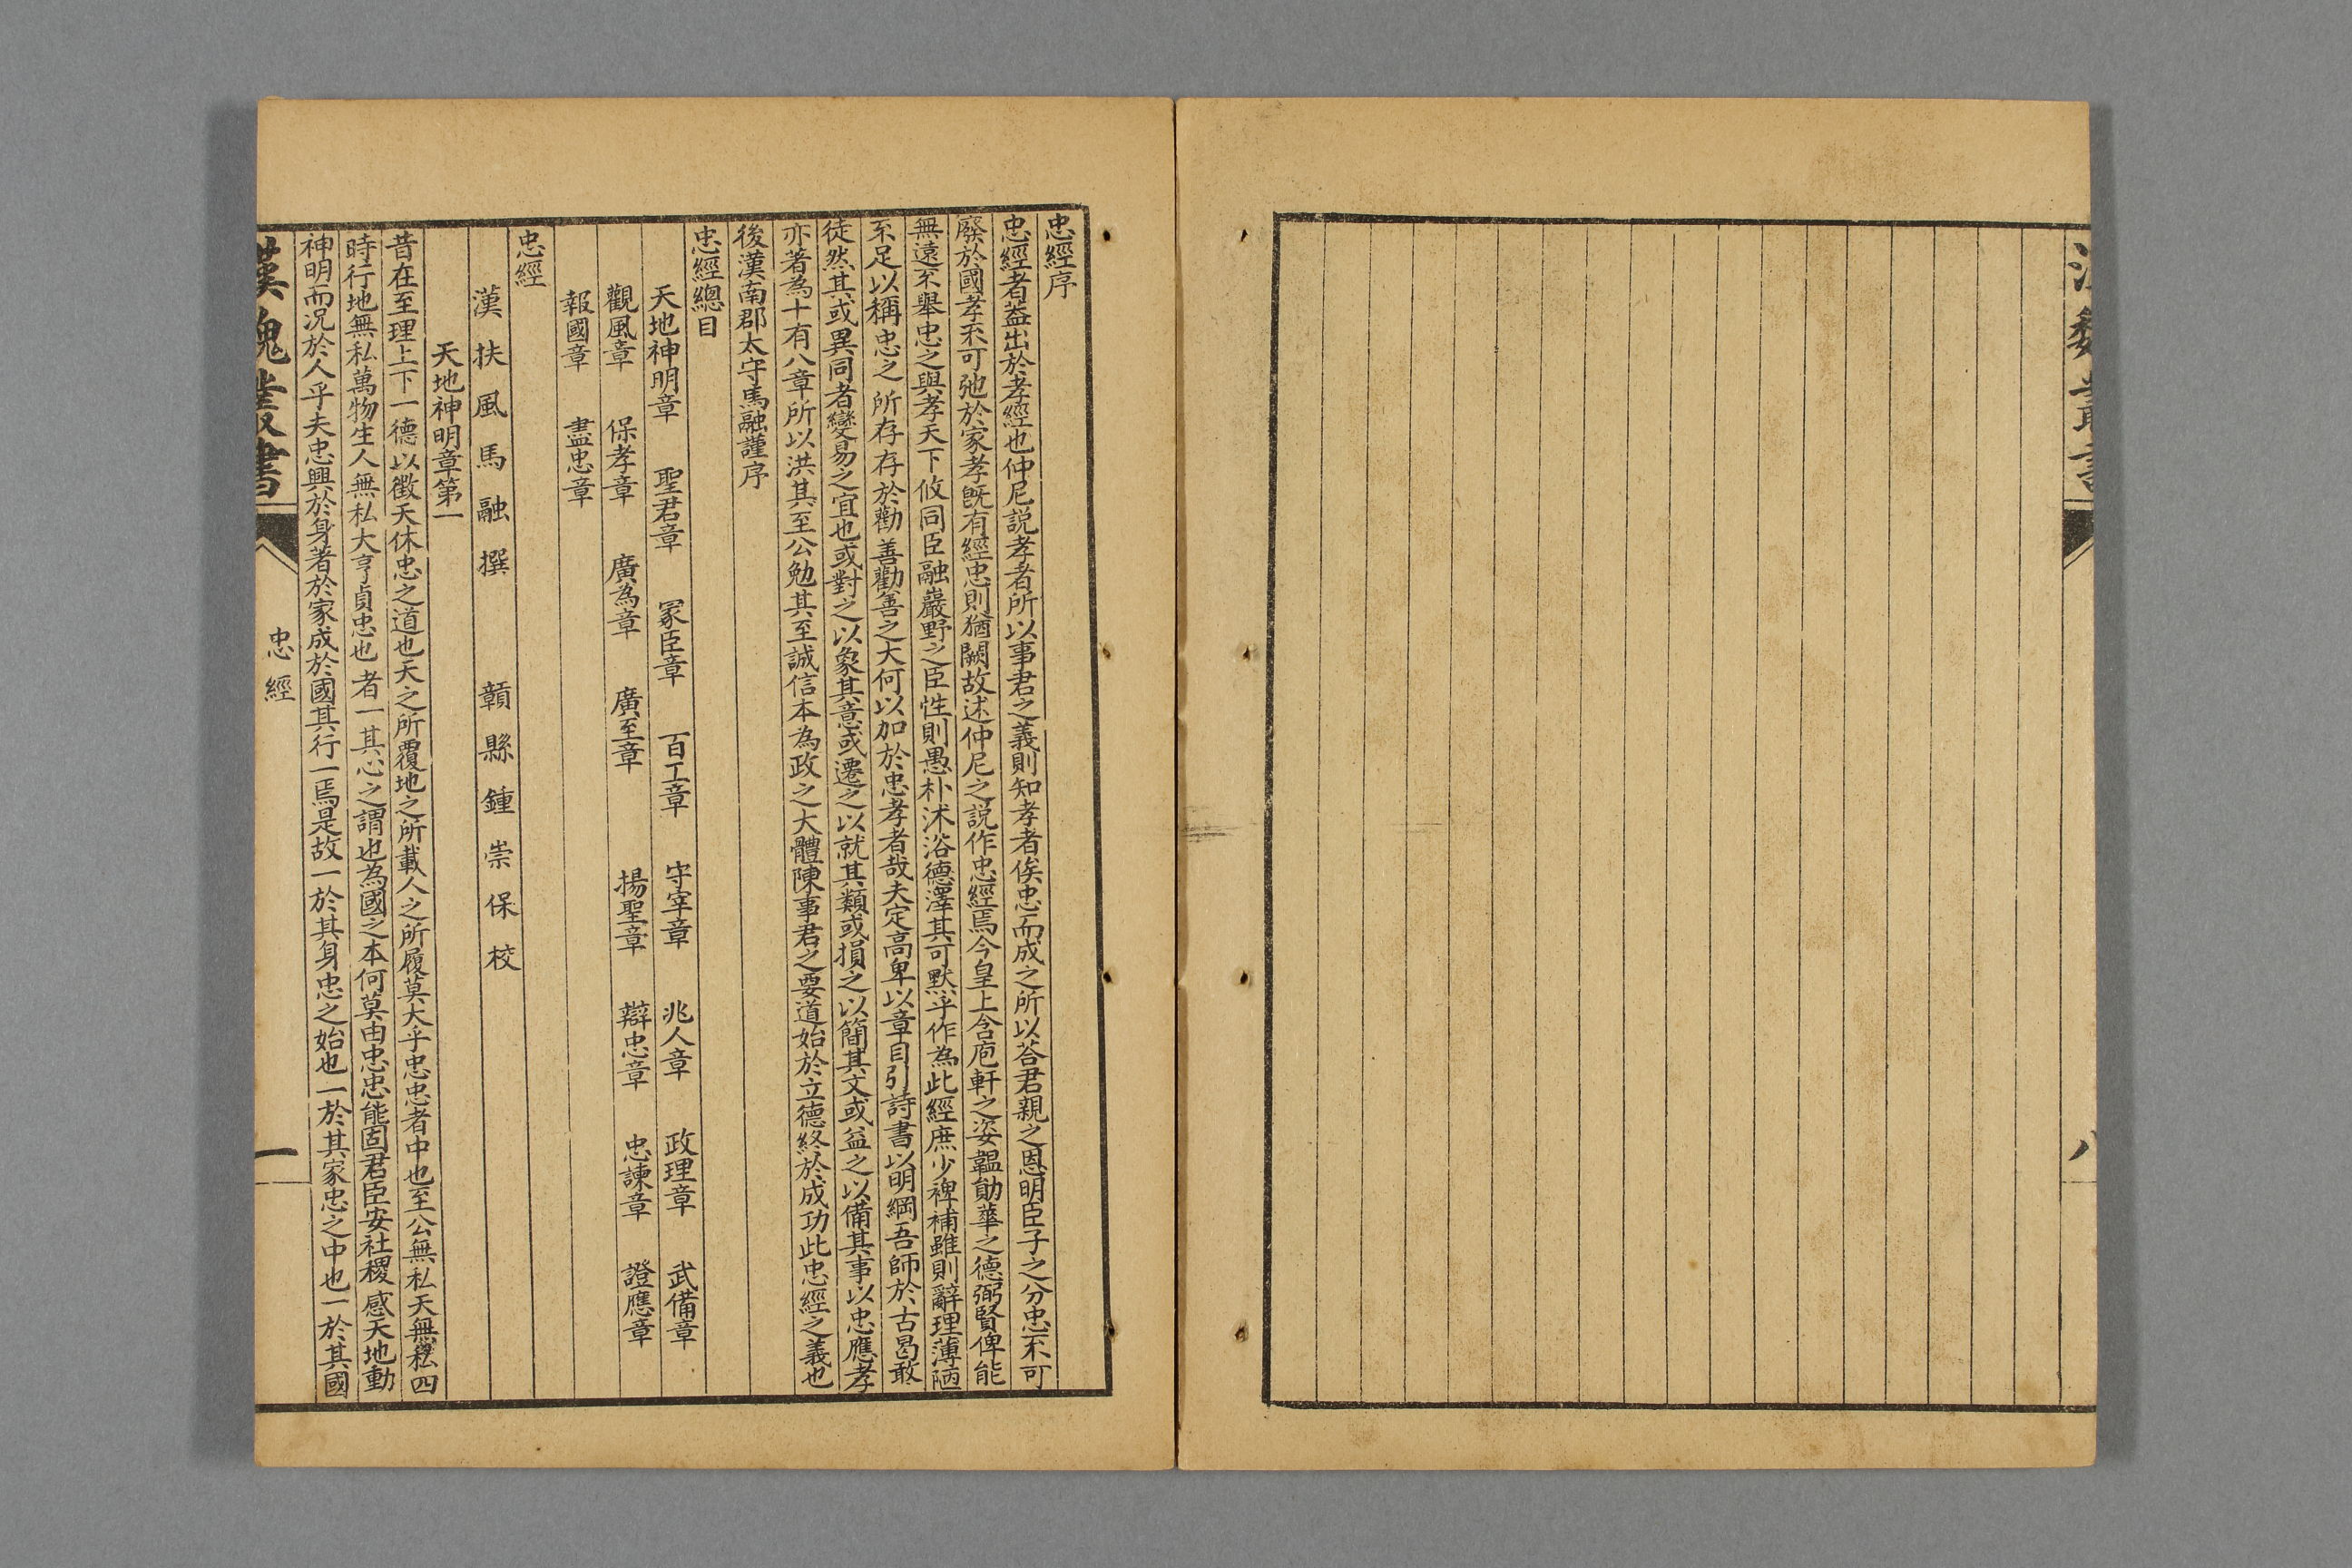 漢魏叢書
八
忠經序
忠經者蓋出於孝經也仲尼説孝者所以事君之義則知孝者俟忠而成之所以荅君親之恩明臣子之分忠不可
廢於國孝不可弛於家孝旣有經忠則猶闕故述仲尼之説作忠經焉今皇上含庖軒之姿韞勛華之德弼賢俾能
無遠不舉忠之與孝天下攸同臣融巖野之臣性則愚朴沐浴德澤其可默乎作為此經庶少裨補雖則辭理薄陋
不足以稱忠之所存存於勸善勸善之大何以加於忠孝者哉夫定高卑以章目引詩書以明綱吾師於古曷敢
徒然其或異同者變易之宜也或對之以象其意或遷之以就其類或損之以簡其文或益之以備其事以忠應孝
亦著為十有八章所以洪其至公勉其至誠信本為政之大體陳事君之要道始於立德終於成功此忠經之義也
後漢南郡太守馬融謹序
忠經總目
天地神明章 聖君章 冢臣章 百工章 守宰章 兆人章 政理章 武備章
觀風章 保孝章 廣為章 廣至章 揚聖章 辯忠章 忠諫章 證應章
報國章 盡忠章
忠經
漢扶風馬融撰 贑縣鍾崇保校
天地神明章第一
昔在至理上下一德以徵天休忠之道也天之所覆地之所載人之所履莫大乎忠忠者中也至公無私天無私四
時行地無私萬物生人無私大亨貞忠也者一其心之謂也為國之本何莫由忠忠能固君臣安社稷感天地動
神明而况於人乎夫忠興於身著於家成於國其行一焉是故一於其身忠之始也一於其家忠之中也一於其國
漢魏叢書
忠經
一